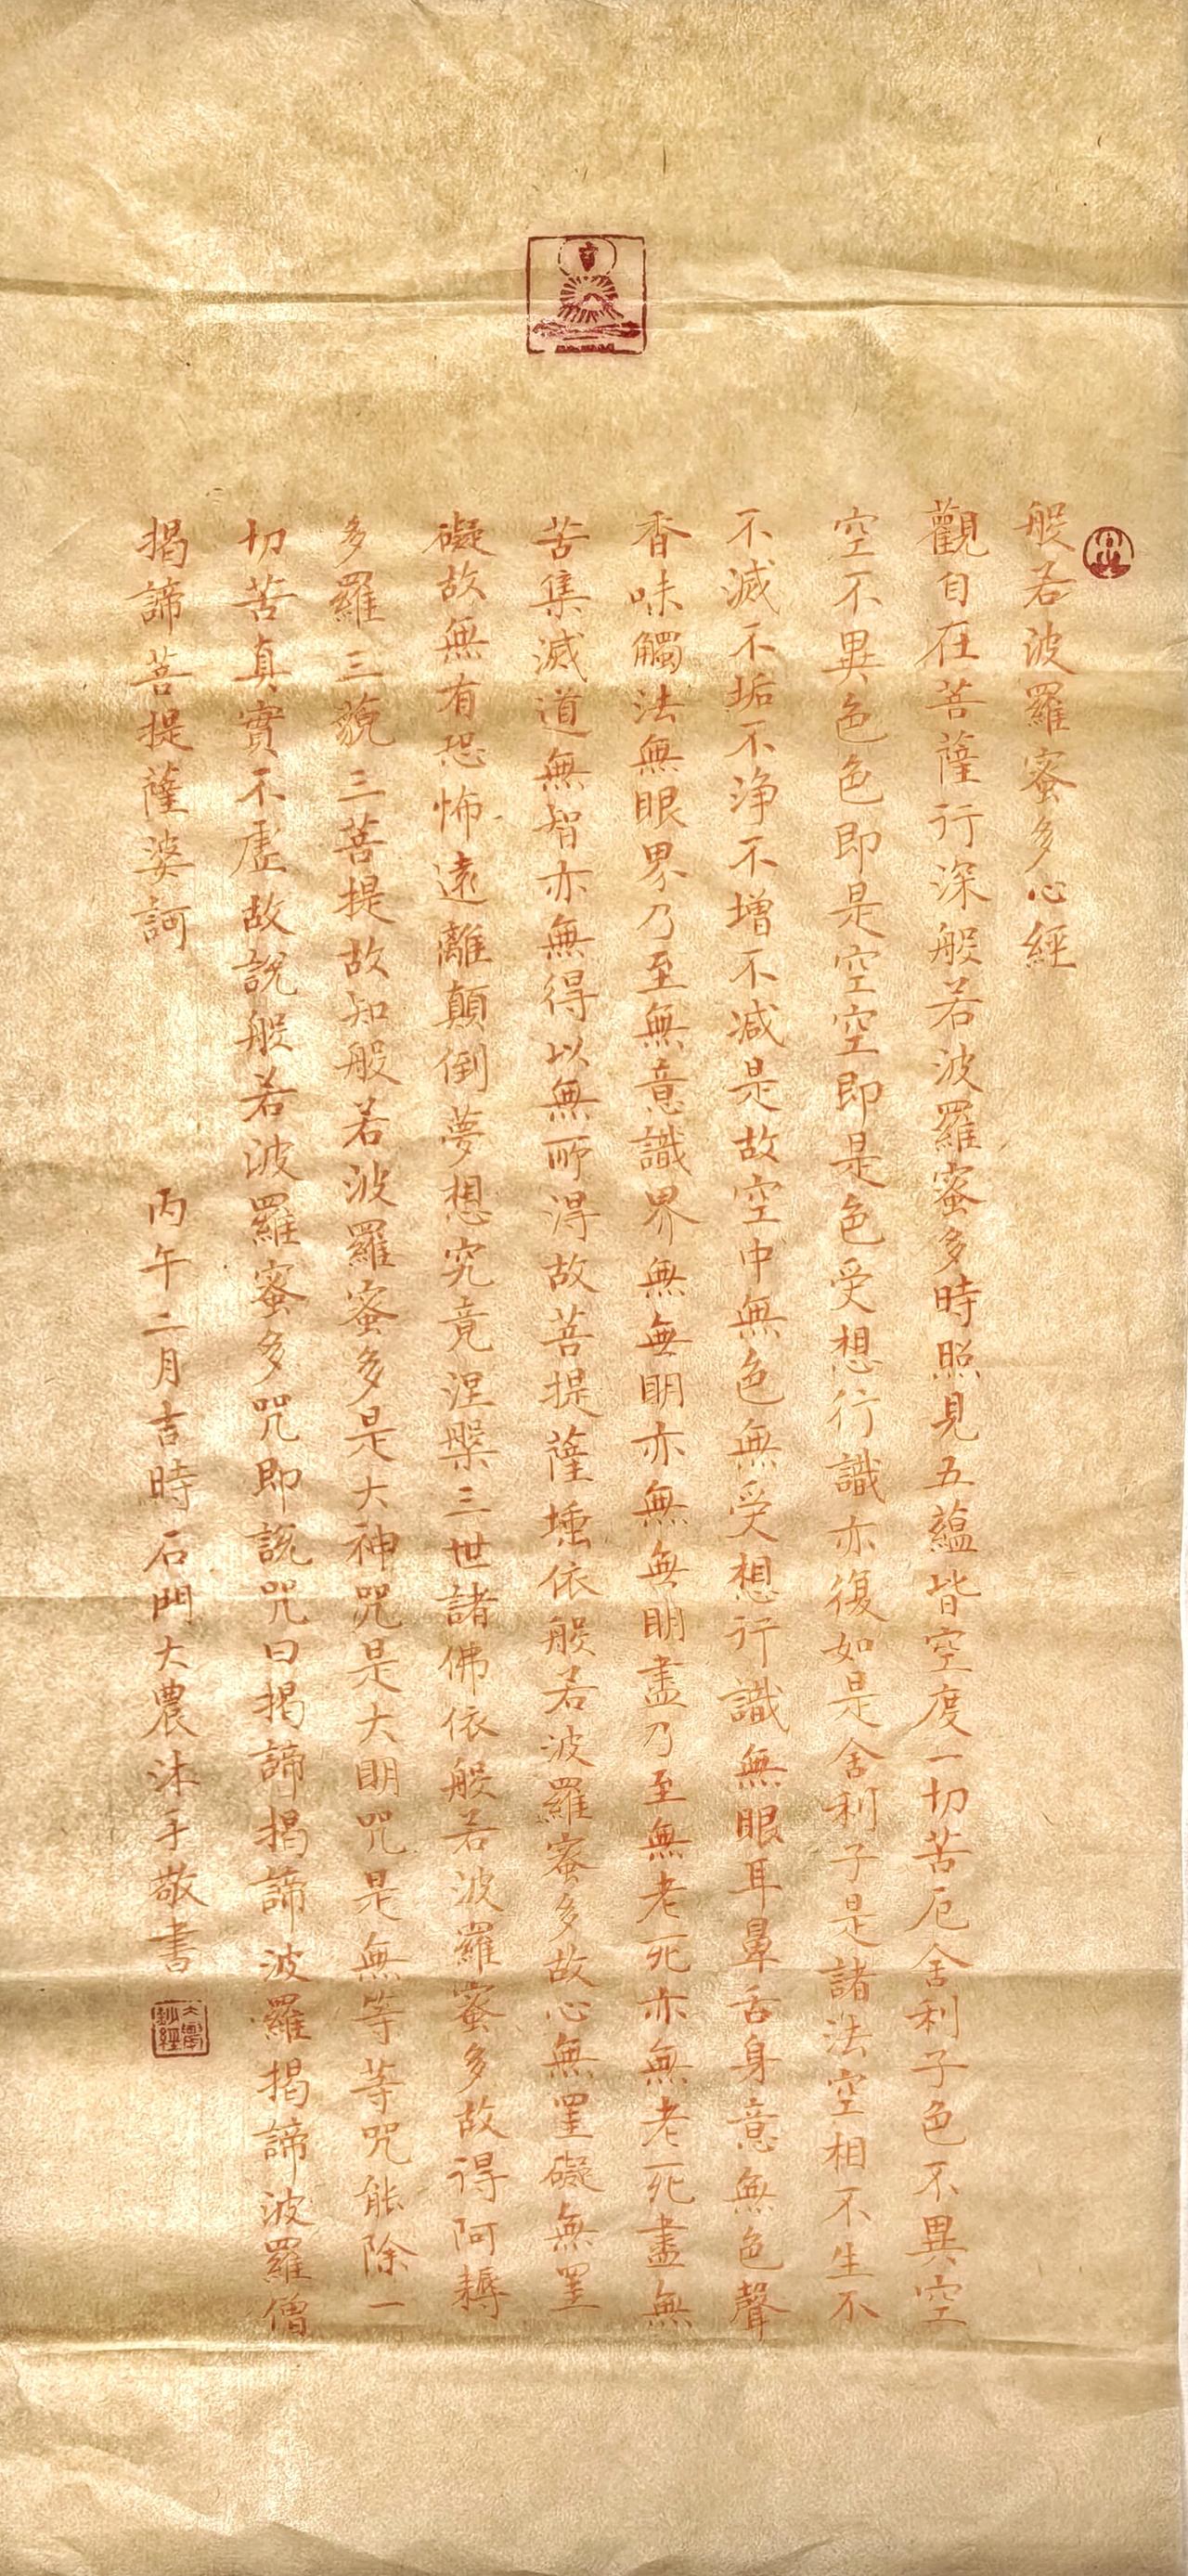 般若波羅蜜多心經
觀自在菩薩行深般若波羅蜜多時照見五蘊皆空度一切苦厄舍利子色不異空
空不異色色即是空空即是色受想行識亦復如是舍利子是諸法空相不生不
不滅不垢不淨不增不減是故空中無色無受想行識無眼耳鼻舌身意無色聲
香味觸法無眼界乃至無意識界無無明亦無無明盡乃至無老死亦無老死盡無
苦集滅道無智亦無得以無所得故菩提薩埵依般若波羅蜜多故心無罣礙無罣
礙故無有恐怖遠離顛倒夢想究竟涅槃三世諸佛依般若波羅蜜多故得阿耨
多羅三藐三菩提故知般若波羅蜜多是大神咒是大明咒是無等等咒能除一
切苦真實不虛故說般若波羅蜜多咒即說咒曰揭諦揭諦波羅揭諦波羅僧
揭諦菩提薩婆訶
丙午二月吉時石門大農沐手敬書